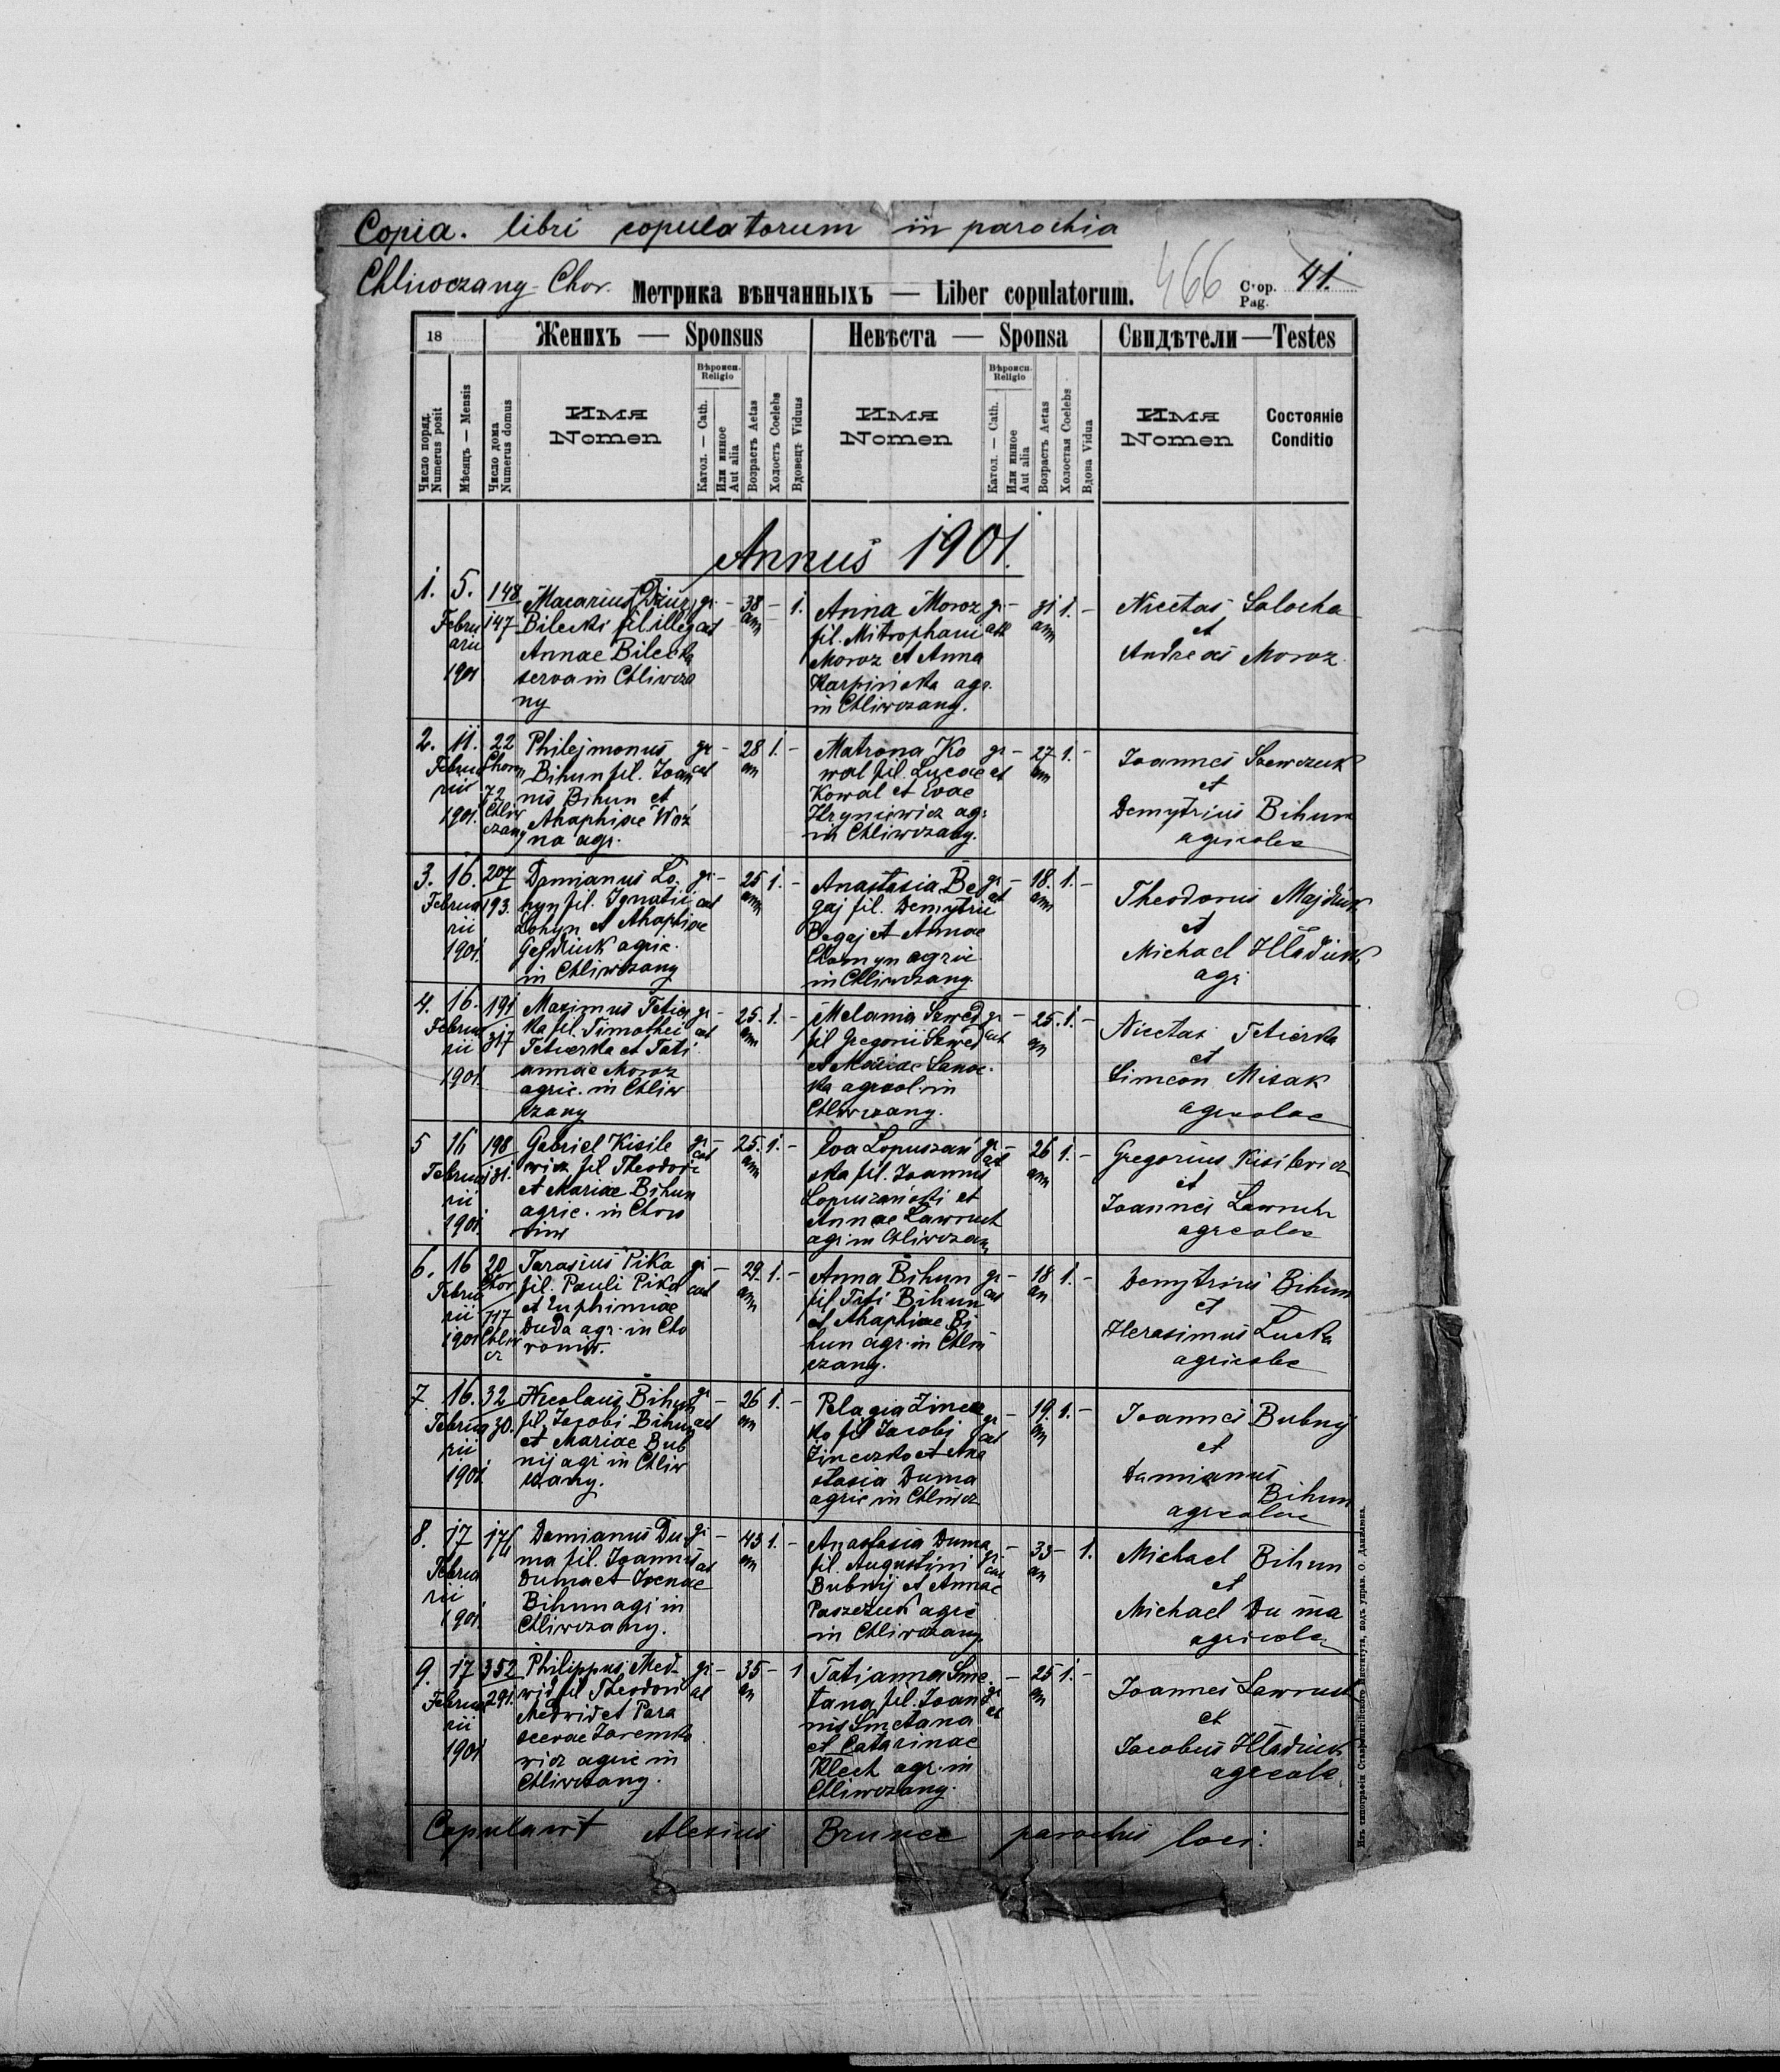 Copia. libri copulatorum in parochia
Chliwczany - Chor.
Метрика вѣнчанныхъ — Liber copulatorum.
466
Стор. Pag. 41.
18
Женихъ — Sponsus
Невѣста — Sponsa
Свидѣтели — Testes
Число поряд. Numerus posit
Мѣсяць — Mensis
Число дома Numerus domus
Имя Nomen
Вѣроисп. Religio
Катол. — Cath.
Или инное Aut alia
Возрастъ Aetas
Холостъ Coelebs
Вдовецъ Viduus
Имя Nomen
Вѣроисп. Religio
Катол. — Cath.
Или инное Aut alia
Возрастъ Aetas
Холостая Coelebs
Вдова Vidua
Имя Nomen
Состояніе Conditio
Annus 1901.
1. 5. Februarii 1901
148 147
Macarius
Bilecki fil. illeg
Annae Bilecka
serva in Chliwcza
ny
gr. cat – 38 an – 1.
Anna Moroz
fil. Mitrophani
Moroz et Anna
Karpinska agr.
in Chliwczany.
gr cath – 31 an 1. –
Nicetas Salocha
et
Andreas Moroz
2. 11. Februarii 1901.
22 Chorw 72 Chliwczany
Philejmonus
Bihun fil. Joan
nis Bihun et
Ahaphiae Woź
na agr.
gr cat – 28 an 1. –
Matrona Ko
wal fil. Lucae
Kowal et Evae
Hryniewicz agr
in Chliwczany.
gr cat – 27 an 1. –
Joannes Szewczuk
et
Demytrius Bihun
agricolae
3. 16. Februarii 1901.
207 193.
Demianus Lo
hyn fil. Ignatii
Lohyn et Ahaphiae
Gejdiuk agric.
in Chliwczany
gr cat – 25 ann 1. –
Anastasia Be
gaj fil. Demytrii
Begaj et Annae
Chomyn agric
in Chliwczany.
gr cat – 18. ann 1. –
Theodorus Majdiuk
et
Michael Hladiuk
agr
4. 16. Februarii 1901
191 317
Maximus Teticz
ka fil. Timothei
Teticzka et Tati
annae Moroz
agric. in Chliw
czany
gr cat – 25. ann 1. –
Melania Szwed
fil Gregorii Szwed
et Mariae Sanoc
ka agricol. in
Chliwczany.
gr cat – 25. an 1. –
Nicetas
et
Simeon Misak
agricolae
5 16 Februarii 1901.
198 131.
Gabriel Kisile
wicz fil Theodori
et Mariae Bihun
agric. in Choro
niw
gr cat – 25. ann 1. –
Eva Lopuszań
ska fil. Joannis
Lopuszański et
Annae Lawruch
agr in Chliwczany
gr cat – 26 ann 1. –
Gregorius Kisilewicz
et
Joannes Lawruch
agricolae
6. 16 Februarii 1901
20 Chor 117 Chliwcz
Tarasius Pika
fil. Pauli Pika
et Euphimiae
Duda agr. in Cho
roniw.
gr cat – 29. ann 1. –
Anna Bihun
fil Titi Bihun
et Ahaphiae Bi
hun agr. in Chliw
czany.
gr cat – 18 an 1. –
Demytrius Bihun
et
Herasimus Lucka
agricolae
7. 16. Februarii 1901
32 30.
Nicolaus Bihun
fil. Jacobi Bihun
et Mariae Bub
nij agr in Chliw
czany.
gr cat – 26 an 1. –
Pelagia Zinecz
ko fil Jacobi
Zineczko et Ana
stasia Duma
agric in Chliwcz
gr cat – 19. an 1. –
Joannes Bubnij
et
Damianus
Bihun
agricolae
8. 17 Februarii 1901.
Demianus Du
ma fil. Joannis
Duma et Irenae
Bihun agr in
Chliwczany.
gr cat – 43 an 1. –
Anastasia Duma
fil. Augustini
Bubnij et Annae
Paszczuk agric
in Chliwczany
gr cat – 33 an – 1.
Michael Bihun
et
Michael Duma
agricolae
9. 17 Februarii 1901
352 291.
Philippus Med
wid fil Theodori
Medwid et Para
scevae Jaremko
wicz agric in
Chliwczany.
gr cat – 35 an – 1
Tatianna Sme
tana fil. Joan
nis Smetana
et Catarinae
Klech agr. in
Chliwczany.
gr cat – 25 an 1. –
Joannes Lawruch
et
Jacobus Hladiuk
agricolae
Copulavit Alexius Brunec parochus loci.
Изъ типографіи Ставропигійского Института, подъ управ. О. Данилюка.